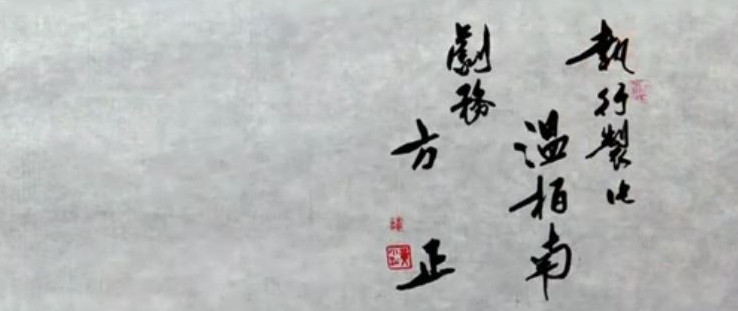 執行製作
温柏南
劇務
方正